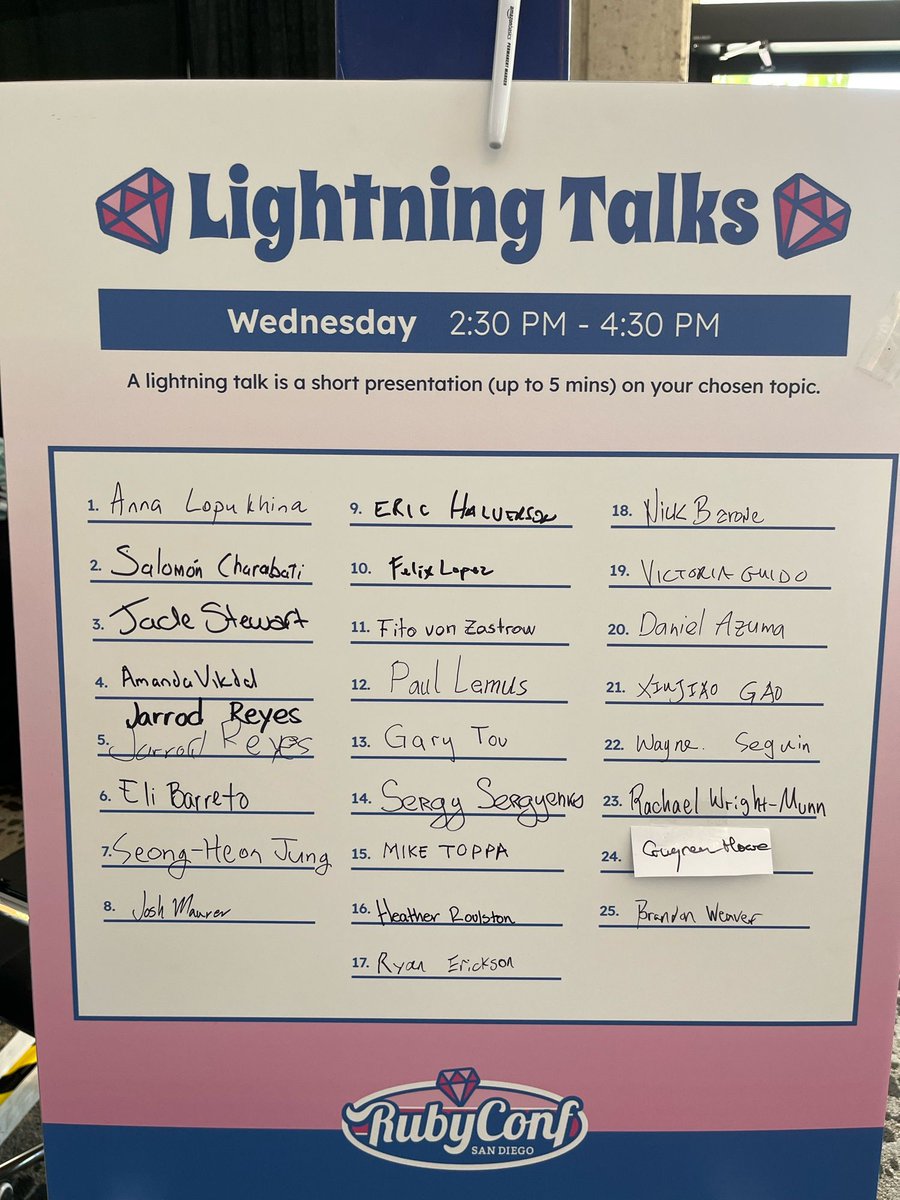 Lightning Talks
Wednesday 2:30 PM - 4:30 PM
A lightning talk is a short presentation (up to 5 mins) on your chosen topic.
1. Anna Lopukhina
2. Salomón Charabati
3. Jade Stewart
4. Amanda
Jarrod Reyes
5. Jarrod Reyes
6. Eli Barreto
7. Seong-Heon Jung
8. Josh Maurer
9. ERIC HALVERSON
10. Felix Lopez
11. Fito von Zastrow
12. Paul Lemus
13. Gary Tou
14. Sergy Sergyenko
15. MIKE TOPPA
16. Heather Roulston
17. Ryan Erickson
18. Nick Barone
19. VICTORIA GUIDO
20. Daniel Azuma
21. GAO
22. Wayne. Seguin
23. Rachael Wright-Munn
24.
25. Brandon Weaver
RubyConf
SAN DIEGO